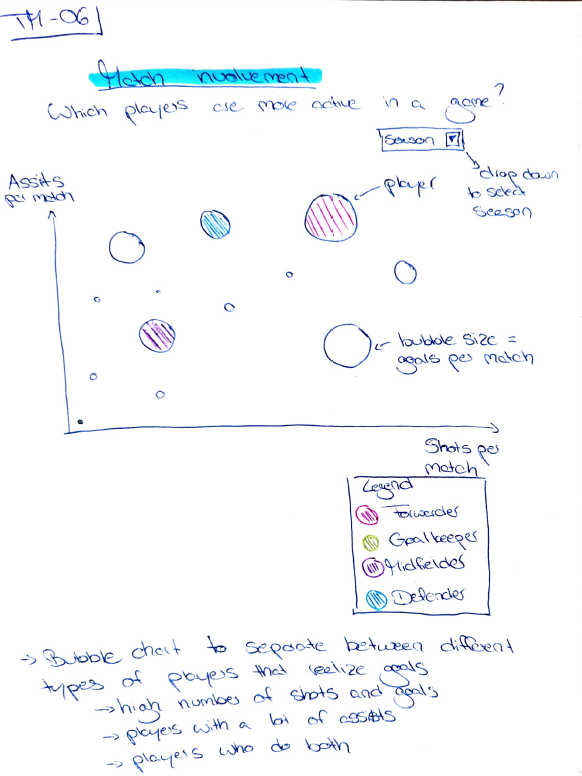 TM-06
Match involvement
Which players are more active in a game?
Season
drop down
to select
season
Assits
per match
player
bubble size =
goals per match
Shots per
match
Legend
Forwarder
Goalkeeper
Midfielder
Defender
→ Bubble chart to separate between different
types of players that realize goals
→ high number of shots and goals
→ players with a lot of assists
→ players who do both